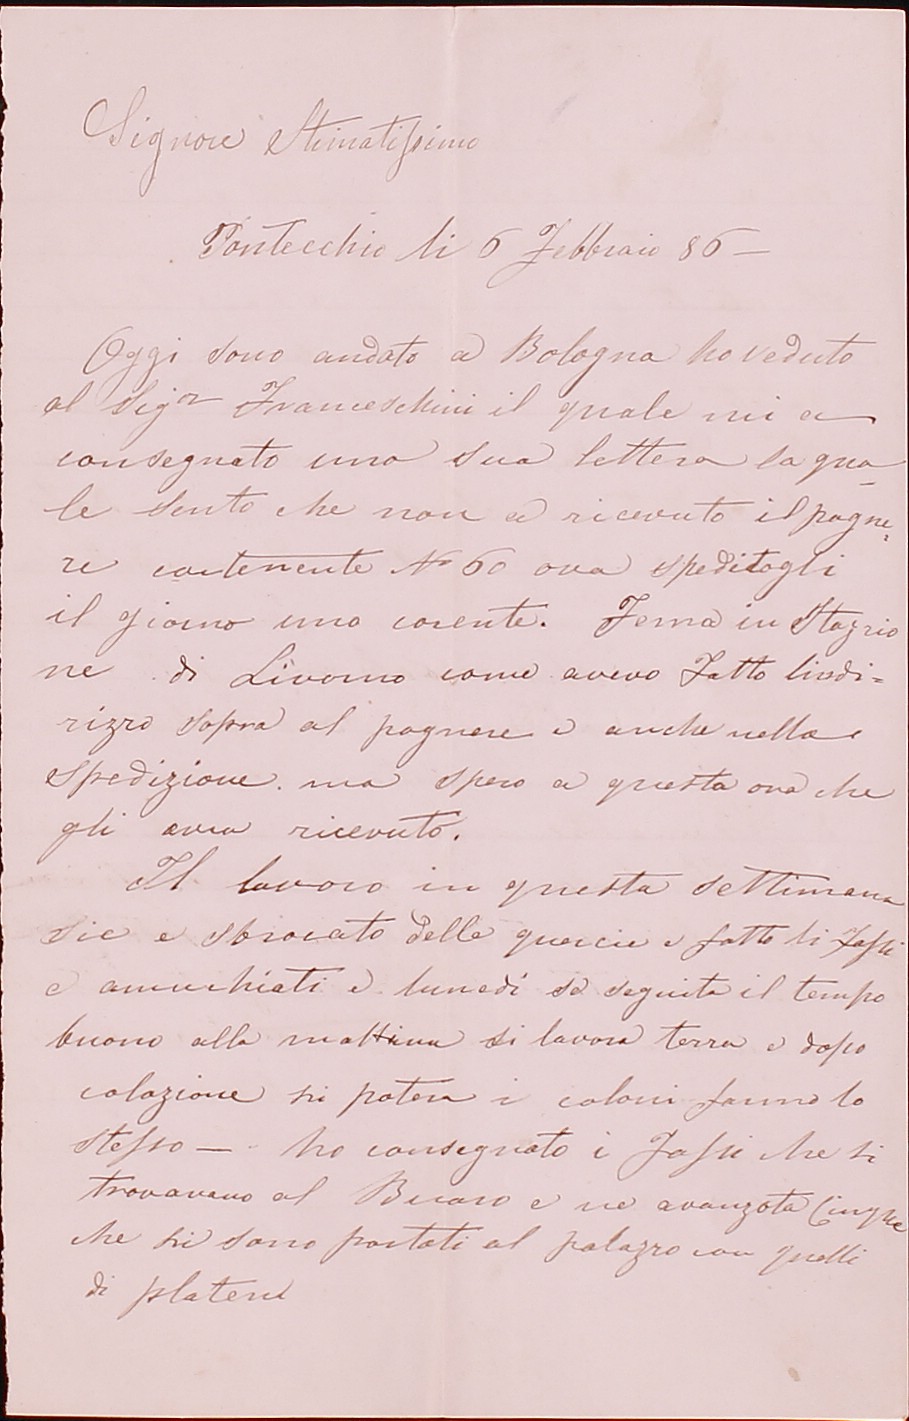 Signore Stimatissimo
Pontecchio li 6 Febbraio 86 —
Oggi sono andato a Bologna ho veduto
al Sigr Franceschini il quale mi a
consegnato una sua lettera la qua-
le sento che non a ricevuto il pagne=
re contenente No 60 ova speditogli
il giorno uno corente. Ferma in Stazio
ne di Livorno come avevo fatto lindi=
rizzo sopra al pagnere e anche nella
spedizione. ma spero a questa ora che
gli avra ricevuto.
Il lavoro in questa settimana
sie e sbrocato delle quercie e fatto li fassi
e amuchiati e lunedi se seguita il tempo
buono alla mattina si lavora terra e dopo
colazione si potera i coloni fanno lo
stesso — ho consegnato i fassi che si
trovavano al e ne avanzota Cinque
che si sono portati al palazzo con quelli
di platene